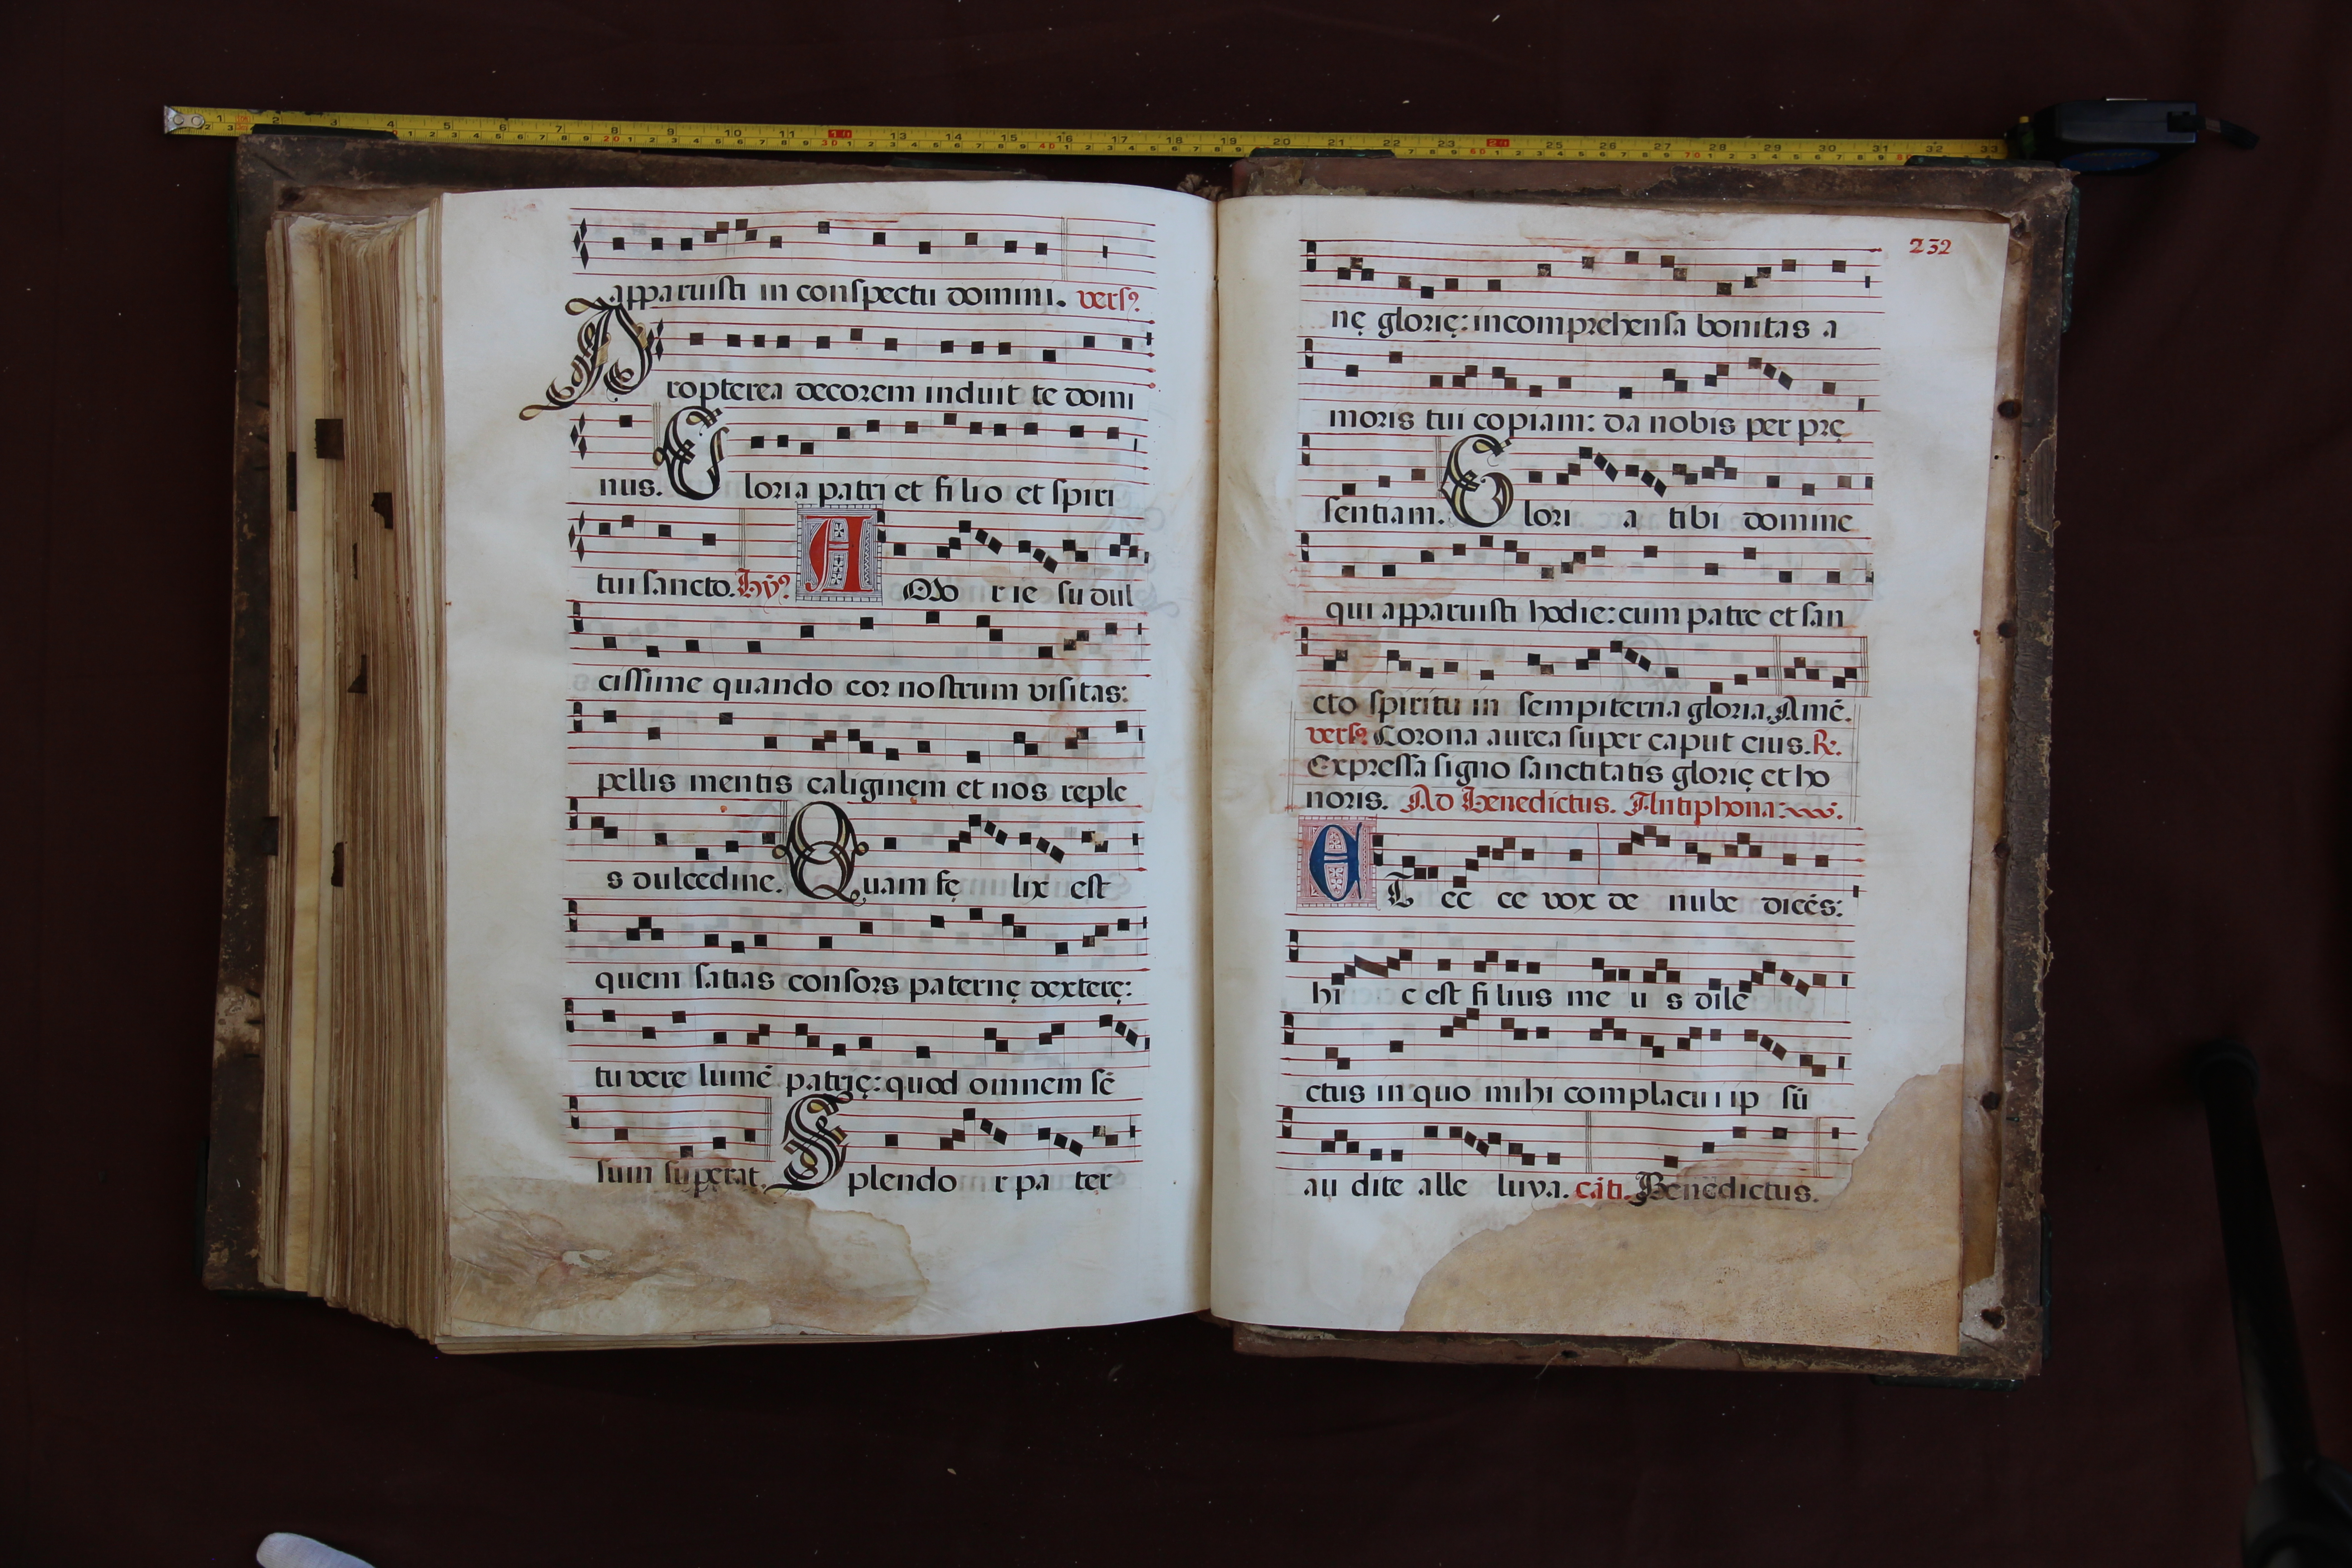 apparuisti in conspectu domini. versꝰ
Propterea decorem induit te domi
nus. Gloria patri et filio et spiri
tui sancto. hỹꝰ AMo r ie su dul
cissime quando cor nostrum visitas:
pellis mentis caliginem et nos reple
s dulcedine. Quam fę lix est
quem satias consors paternę dexterę:
tu vere lumē patrię: quod omnem sē
sum superat. Splendo r pa ter
232
nę glorię: incomprehensa bonitas a
moris tui copiam: da nobis per prę
sentiam. Glori a tibi domine
qui apparuisti hodie: cum patre et san
cto spiritu in sempiterna gloria. Amē.
versꝰ Corona aurea super caput eius. R.
Expressa signo sanctitatis glorię et ho
noris. Ad Benedictus. Antiphona:
E T ec ce vox de nube dicēs:
hi c est filius me u s dile
ctus in quo mihi complacui ip sū
au dite alle luya. cāti. Benedictus.